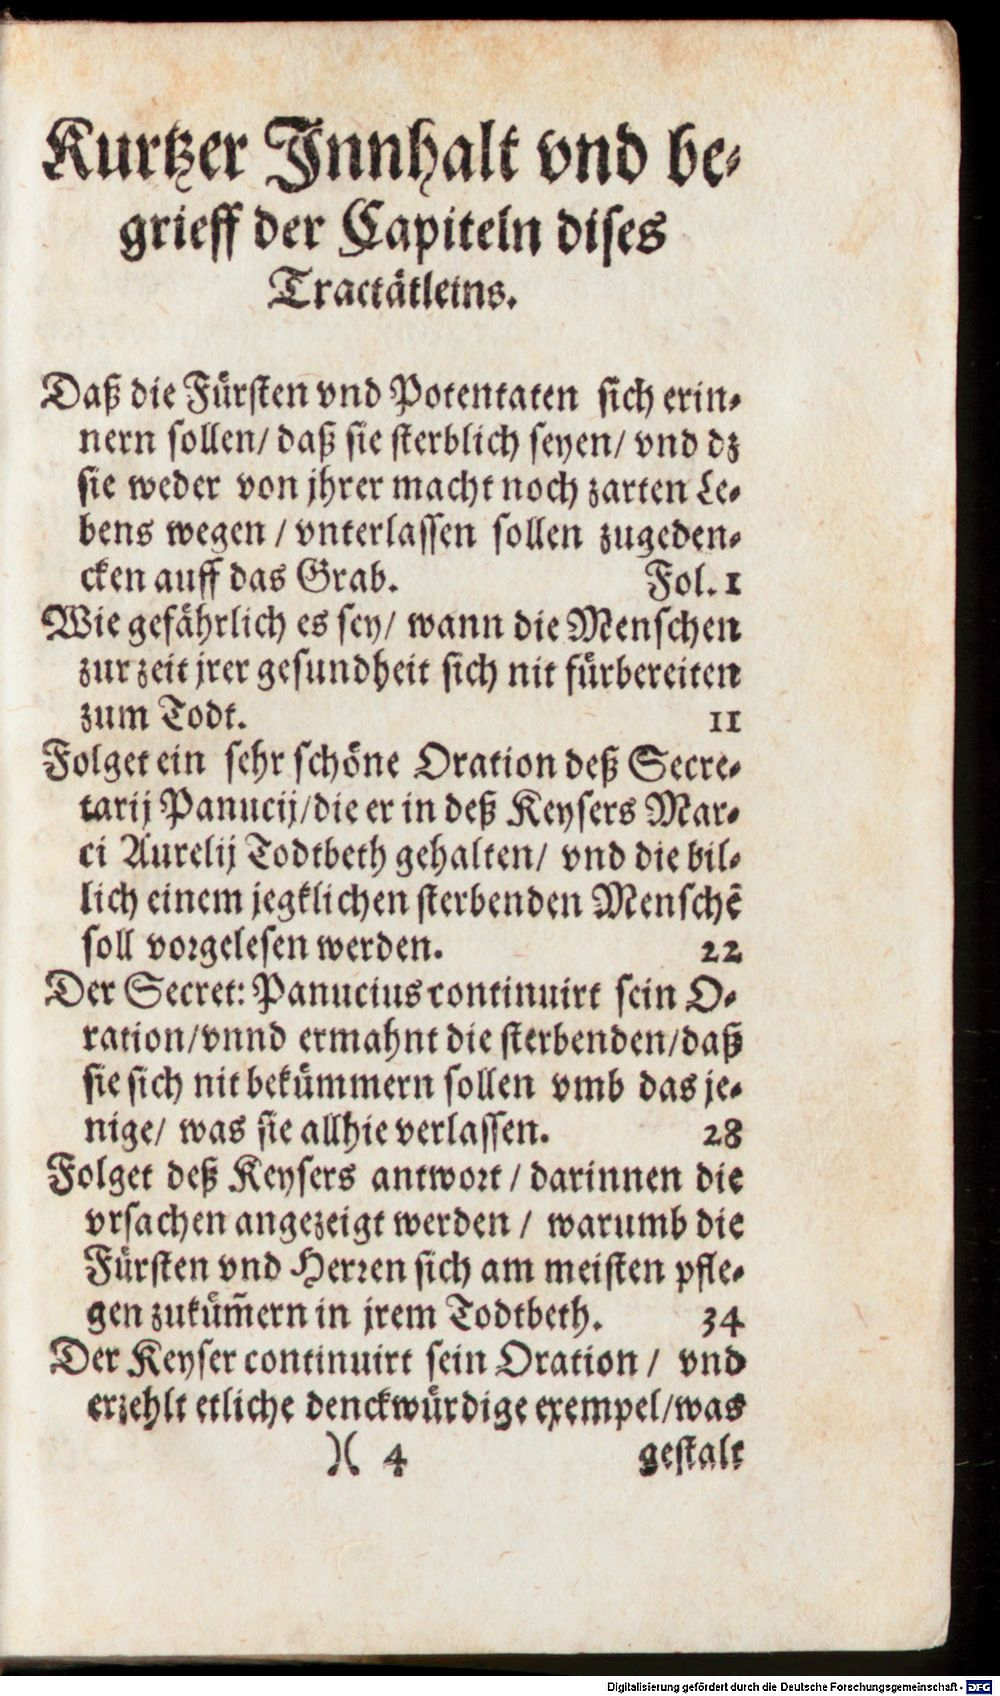 Kurtzer Innhalt vnd be-
grieff der Capiteln dises
Tractätleins.
Daß die Fürsten vnd Potentaten sich erin-
nern sollen/ daß sie sterblich seyen/ vnd dz
sie weder von jhrer macht noch zarten Le-
bens wegen / vnterlassen sollen zugeden-
cken auff das Grab. Fol. 1
Wie gefährlich es sey/ wann die Menschen
zur zeit jrer gesundheit sich nit fürbereiten
zum Todt. 11
Folget ein sehr schöne Oration deß Secre-
tarij Panucij/die er in deß Keysers Mar-
ci Aurelij Todtbeth gehalten/ vnd die bil-
lich einem jegklichen sterbenden Menschẽ
soll vorgelesen werden. 22
Der Secret: Panucius continuirt sein O-
ration/vnnd ermahnt die sterbenden/daß
sie sich nit bekümmern sollen vmb das je-
nige/ was sie allhie verlassen. 28
Folget deß Keysers antwort / darinnen die
vrsachen angezeigt werden / warumb die
Fürsten vnd Herren sich am meisten pfle-
gen zuküm̃ern in jrem Todtbeth. 34
Der Keyser continuirt sein Oration / vnd
erzehlt etliche denckwürdige exempel/was
)( 4 gestalt
Digitalisierung gefördert durch die Deutsche Forschungsgemeinschaft - DFG